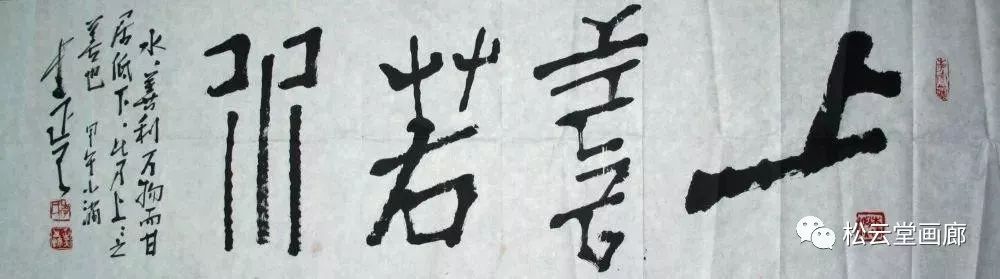 上善若水
水、善利万物而甘
居低下、此乃上上之
善也 甲午小满
松云堂画廊